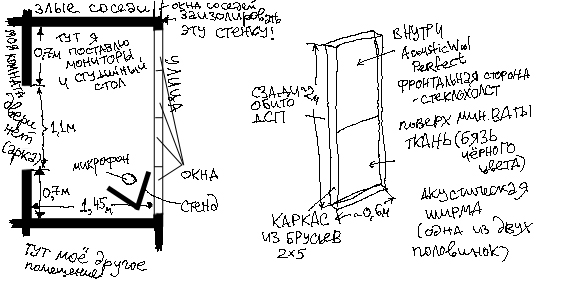 злые соседи
окна соседей
заизолировать
эту стенку!
моя комната
0,7м
тут я
поставлю
мониторы
и студийный
стол
улица
двери
нет
(арка)
1,1м
микрофон
окна
0,7м
1,45м
стенд
тут моё другое
помещение
сзади
обито
ДСП
~2м
каркас
из брусьев
2×5
~0,6м
внутри
AcousticWool
Perfect
фронтальная сторона
- стеклохолст
поверх мин. ваты
ткань (бязь
чёрного
цвета)
акустическая
ширма
(одна из двух
половинок)